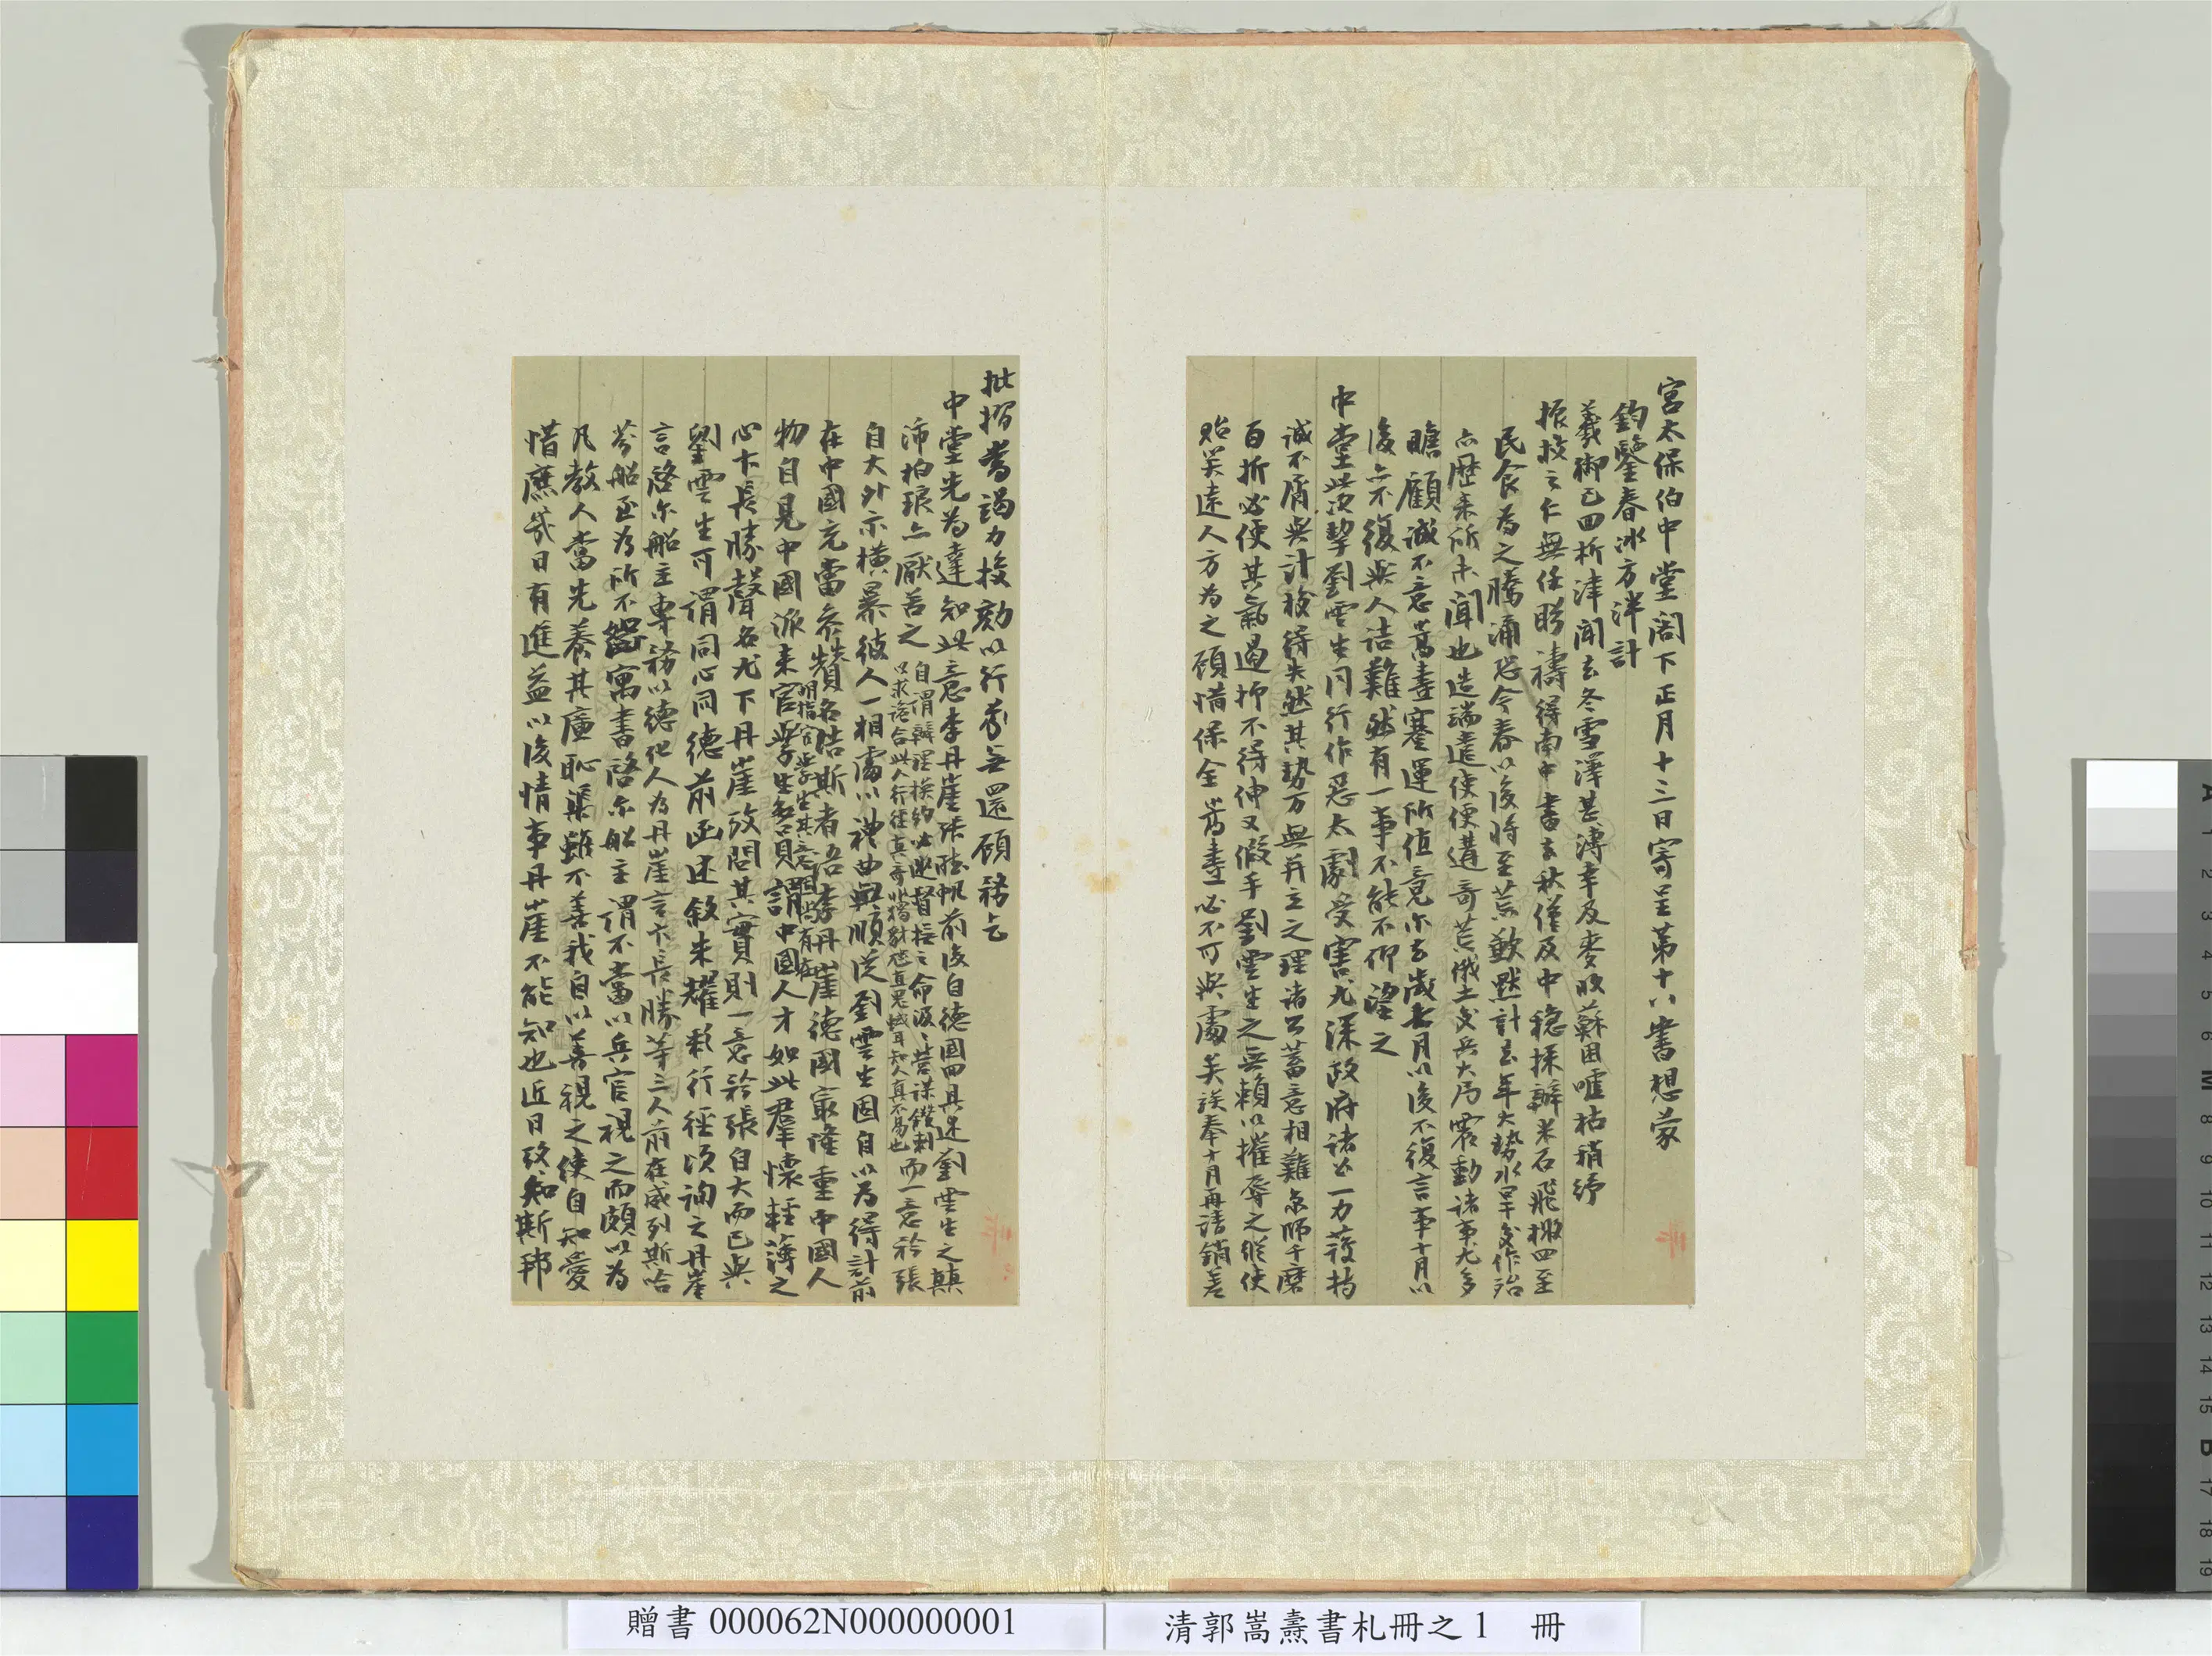 宮太保伯中堂閣下正月十三日寄呈第十八書想蒙
鈞鑒春冰方泮計
羲御已四析津聞去冬雪澤甚薄幸及麥收蘇困噓枯稍紓
振救之仁無任盼禱得南中書去秋僅及中稔採辦米石飛挽四至
民食為之騰涌恐今春以後將至荒歉默計去年大勢水旱交作殆
亦歷來所未聞也造端遣使便遘奇荒俄土交兵大局震動諸事尤多
瞻顧誠不意嵩燾蹇運所值竟尔去歲七月以後不復言事十月以
後亦不復與人詰難然有一事不能不仰望之
中堂此次挈劉雲生同行作惡太劇受害尤深政府諸公一力護持
誠不屑與計較得失然其勢万無并立之理諸公蓄意相難京師千磨
百折必使其氣遏抑不得伸又假手劉雲生之無賴以摧辱之從使
貽笑遠人方為之顧惜保全嵩燾必不可與處矣茲奉十月再請銷差
批摺當竭力校劾以行冢無還顧務乞
中堂先為達知此意李丹崖張聽帆前後自德國回具述劉雲生之顛
沛柏琅亦厭苦之自謂辦理換約必邀督撫之命汲汲營謀鑽刺
只求詭合此人行徑真奇此猶豺虺直鬼蜮耳知人真不易也而一意矜張
自大外示橫暴彼人一相處以禮曲與順從劉雲生固自以為得計前
在中國充當參贊名浩斯者語李丹崖德國最隆重中國人
物自見中國派來官學生多員謂中國人才如此羣懷輕薄之
明指官學生其意問尚有在
心卞長勝聲名尤下丹崖攷問其實則一意矜張自大而已與
劉雲生可謂同心同德前函述敘朱耀彩行徑頃詢之丹崖
言啓尔船主專務以德化人為丹崖言卞長勝等三人前在威列斯哈
芬船至為所不齒寓書啓尔船主謂不當以兵官視之而頗以為
凡教人當先養其廉恥渠雖不善我自以善視之使自知愛
惜庶幾日有進益以後情事丹崖不能知也近日攷知斯邦
贈書 000062N000000001
清郭嵩燾書札冊之1 冊